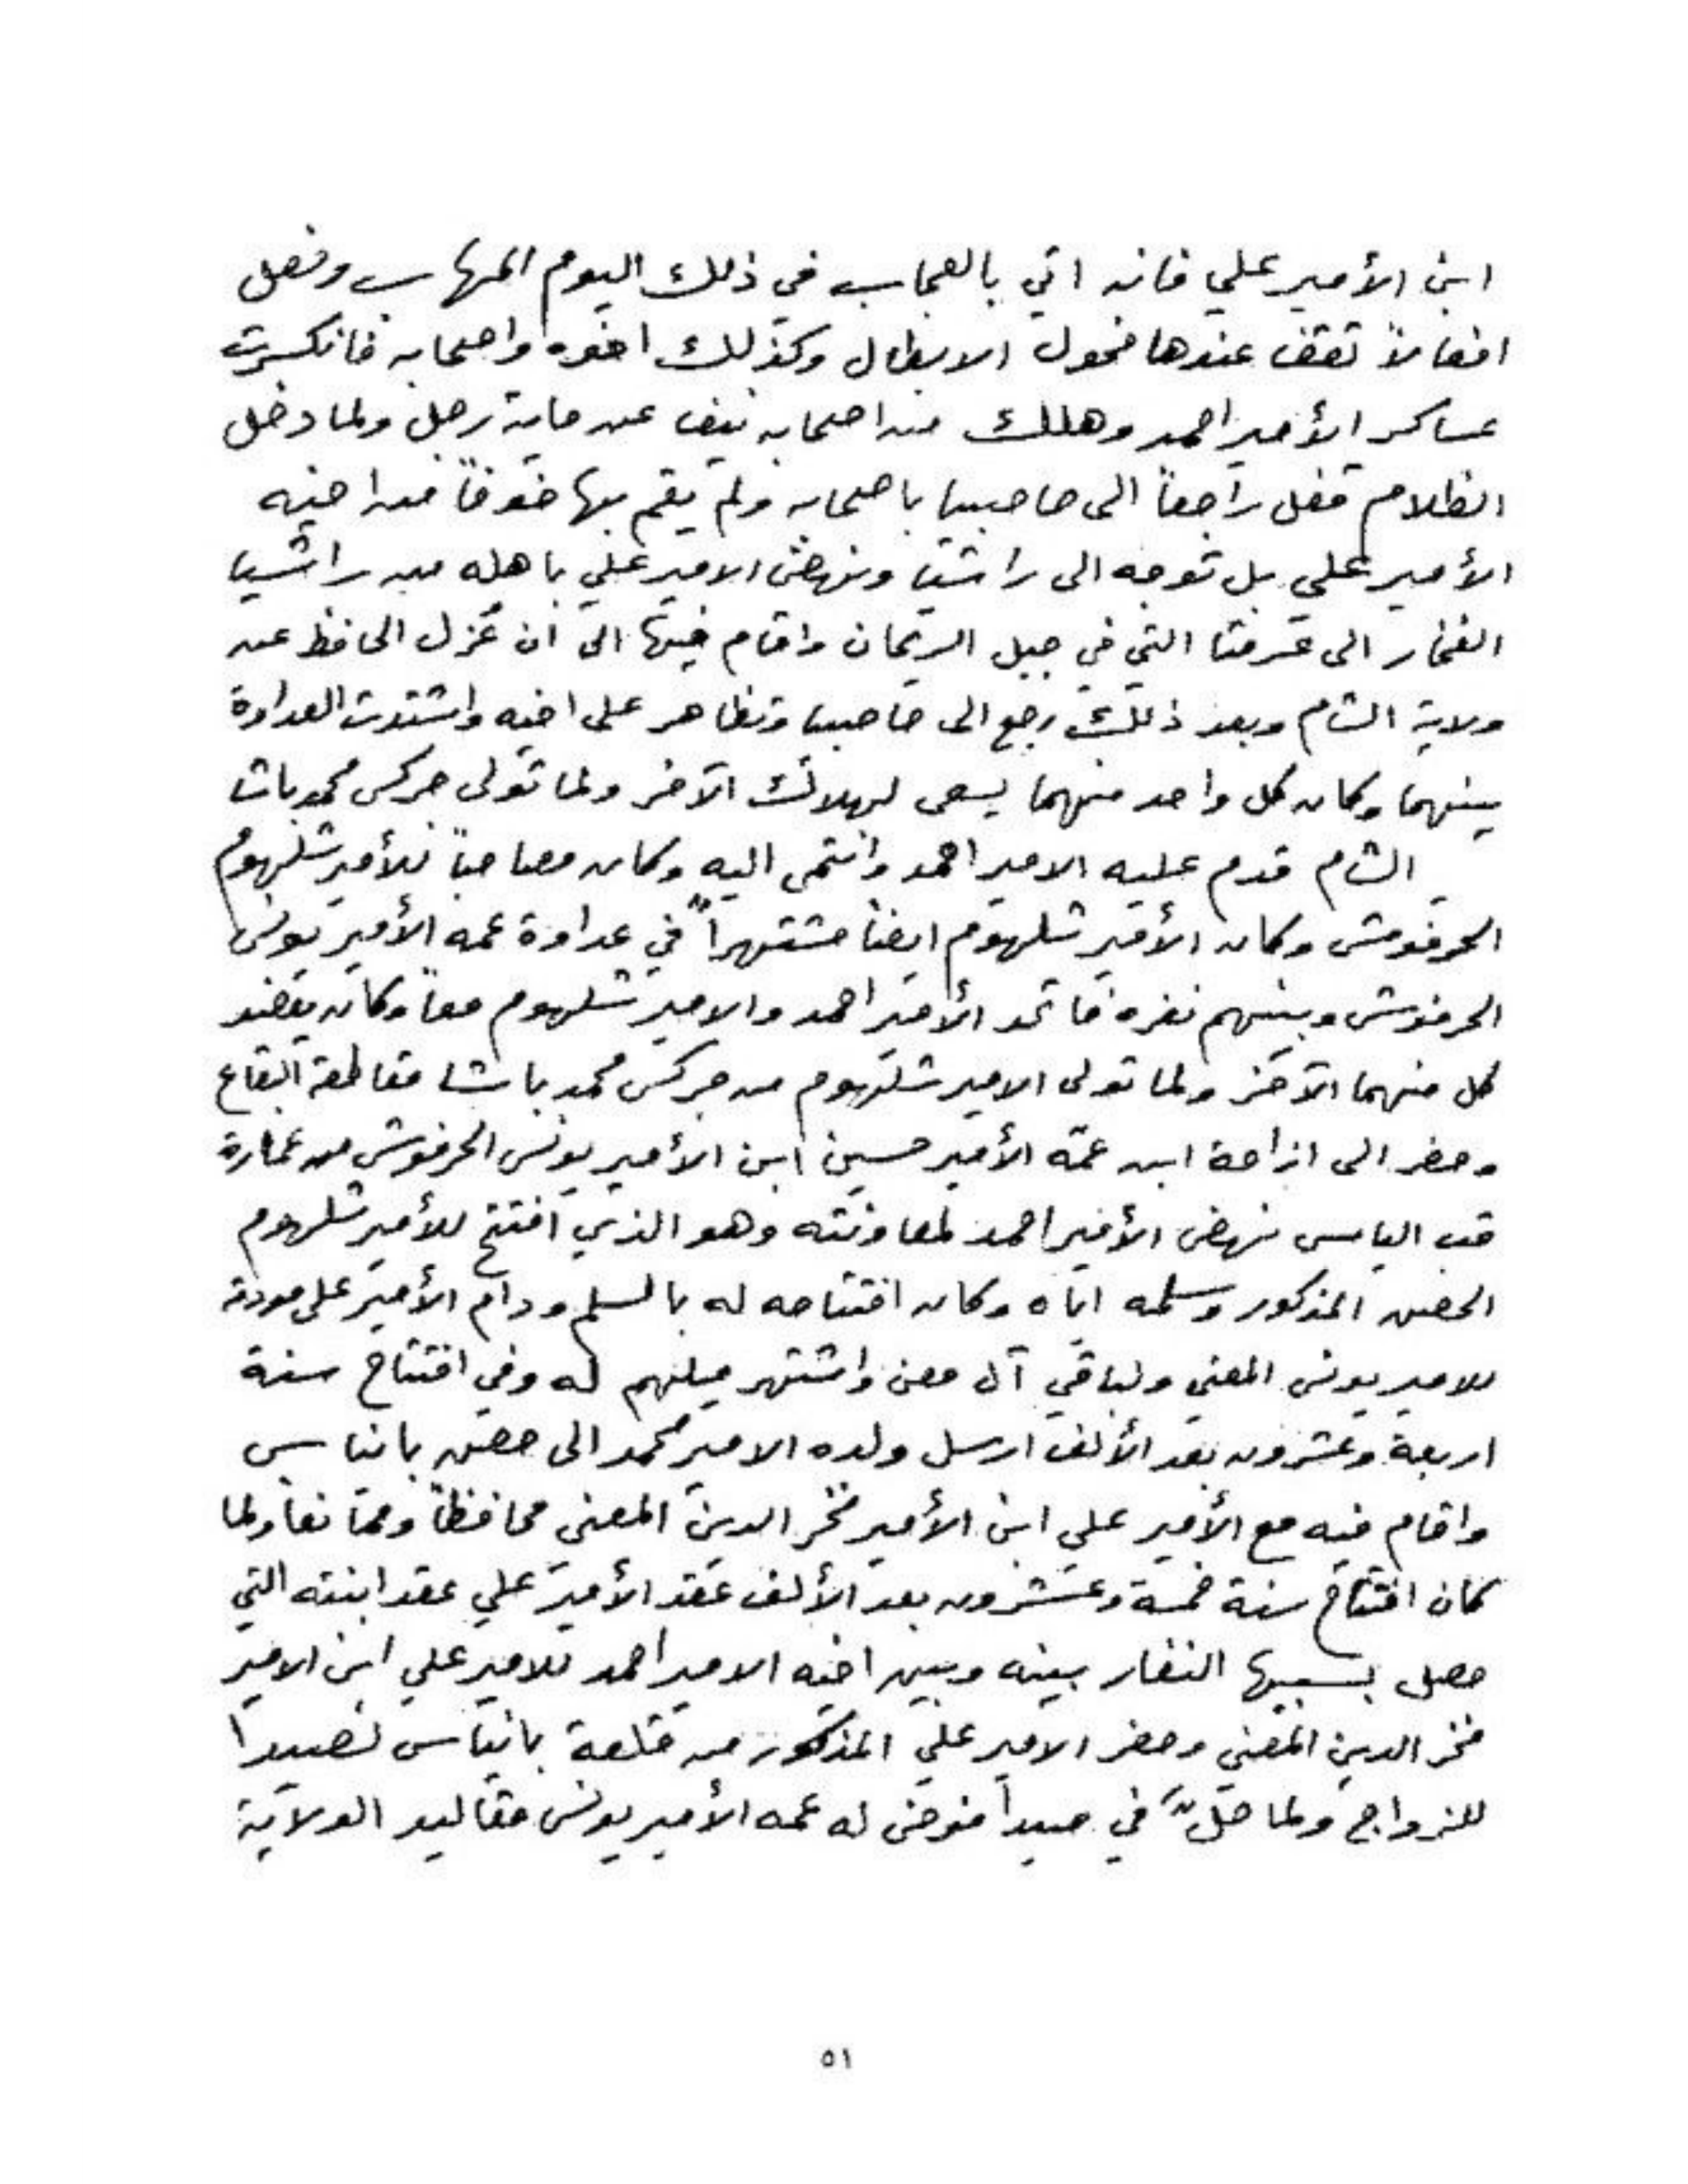 ابن الأمير علي فانه اتي بالعجاب في ذلك اليوم المهاب وفعل
افعالاً تقف عندها فحول الابطال وكذلك اخوه واصحابه فانكسرت
عساكر الأمير احمد وهلك من اصحابه نيف عن ماية رجل ولما دخل
الظلام قفل راجعاً الى حاصبيا باصحابه ولم يقم بها خوفاً من اخيه
الأمير علي بل توجه الى راشيا ونهض الامير علي باهله من راشيا
الفخار الى عرمتا التي في جبل الريحان واقام فيها الى ان عُزل الحافظ عن
ولاية الشام وبعد ذلك رجع الى حاصبيا وتظاهر على اخيه واشتدت العداوة
بينهما وكان كل واحد منهما يسعى لهلاك الآخر ولما تولى جركس محمد باشا
الشام قدم عليه الامير احمد وانتمى اليه وكان مصاحباً للأمير شلهوم
الحرفوش وكان الأمير شلهوم ايضاً مشتهراً في عداوة عمه الأمير يونس
الحرفوش وبينهم نفره فاتحد الأمير احمد والامير شلهوم معاً وكان يعضد
كل منهما الآخر ولما تولى الامير شلهوم من جركس محمد باشا مقاطعة البقاع
وحضر الى ازاحة ابن عمّه الأمير حسين ابن الأمير يونس الحرفوش من عمارة
قب الياس نهض الأمير احمد لمعاونته وهو الذي افتتح للأمير شلهوم
الحصن المذكور وسلمه اياه وكان افتتاحه له بالسلم ودام الأمير على مودة
للامير يونس المعني ولباقي آل معن واشتهر ميلهم له وفي افتتاح سنة
اربعة وعشرون بعد الألف ارسل ولده الامير محمد الى حصن بانياس
واقام فيه مع الأمير علي ابن الأمير فخر الدين المعنى محافظاً وممانعاً ولما
كان افتتاح سنة خمسة وعشرون بعد الألف عقد الأمير علي عقد ابنته التي
حصل بسببها النفار بينه وبين اخيه الامير احمد للامير علي ابن الامير
فخر الدين المعني وحضر الامير علي المذكور من قلعة بانياس لصيدا
للزواج ولما حلّ في صيدا فوض له عمه الأمير يونس مقاليد الولاية
٥١